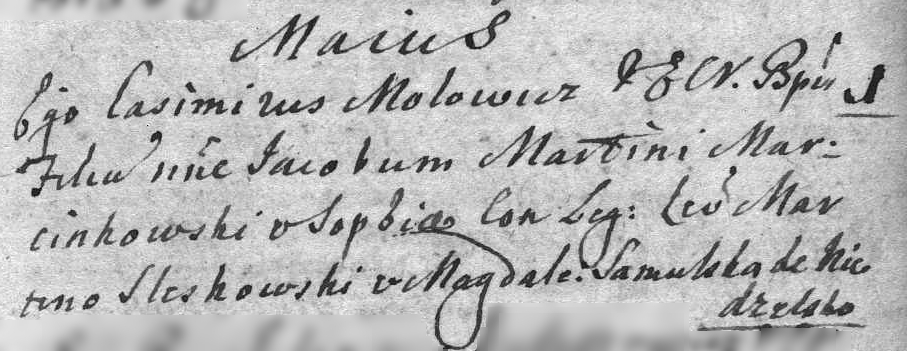 Maius
Ego Casimirus Molowicz q s CN. Bpín 1
Filiū nñe Jacobum Martini Mar:
cinkowski v Sophiae Con Leg: Levō Mar
tino Sleskowski v Magdale: Samulską de Nie
dzelsko